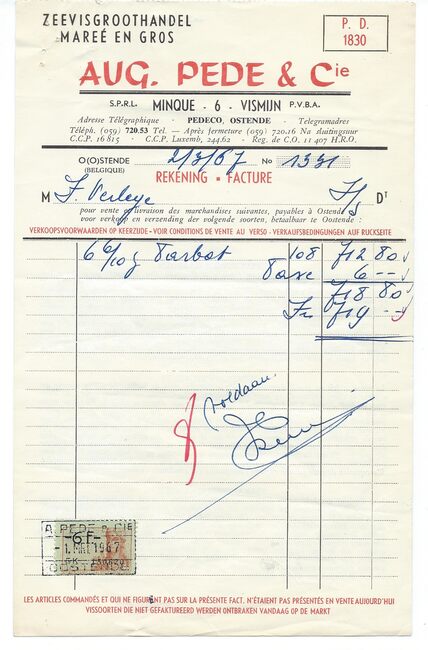 ZEEVISGROOTHANDEL
MAREÉ EN GROS
P. D.
1830
AUG. PEDE & Cie
S.P.R.L. MINQUE - 6 - VISMIJN P.V.B.A.
Adresse Télégraphique - PEDECO, OSTENDE - Telegramadres
Téléph. (059) 720.53 Tel. — Après fermeture (059) 720.16 Na sluitingsuur
C.C.P. 16815 - C.C.P. Luxemb, 244.62 - Reg. de C.O. 11 407 H.R.O.
O(O)STENDE 2/3/67 No 1331
(BELGIQUE)
REKENING • FACTURE
M F. Verleye Dt
pour vente et livraison des marchandises suivantes, payables à Ostende
voor verkoop en verzending der volgende soorten, betaalbaar te Oostende :
VERKOOPSVOORWAARDEN OP KEERZIJDE - VOIR CONDITIONS DE VENTE AU VERSO - VERKAUFSBEDINGUNGEN AUF RUCKSEITE
6 6/10 Tarbot 108 712 80
Taxe 6 --
718 80
Fr 719 --
voldaan
A. PEDE & CIE
-6F-
-1. 1967
OOSTENDE
LES ARTICLES COMMANDÉS ET QUI NE FIGURENT PAS SUR LA PRÉSENTE FACT. N'ÉTAIENT PAS PRÉSENTÉS EN VENTE AUJOURD'HUI
VISSOORTEN DIE NIET GEFAKTUREERD WERDEN ONTBRAKEN VANDAAG OP DE MARKT